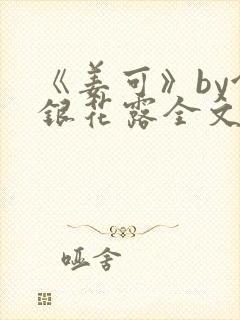 《姜可》by
银花露全文
哑舍